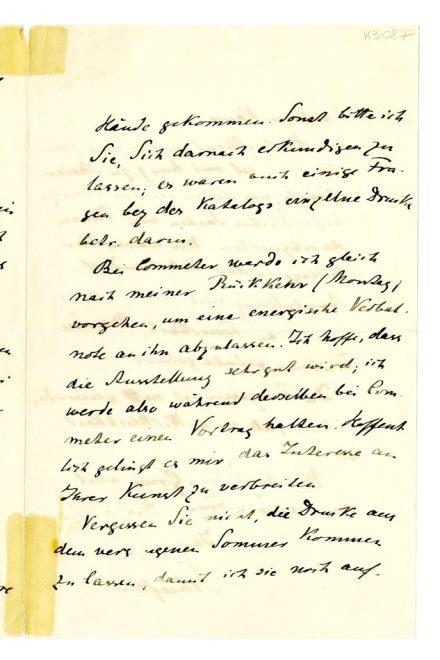 K3087
Hände gekommen. Sonst bitte ich
Sie, Sich darnach erkundigen zu
lassen; es waren auch einige Fra-
gen bez des Katalogs einzelne Drucke
betr. darin.
Bei Commeter werde ich gleich
nach meiner Rückkehr (Montag)
vorgehen, um eine energische Verbal-
note an ihn abzulassen. Ich hoffe, dass
die Ausstellung sehr gut wird; ich
werde also während derselben bei Com-
meter einen Vortrag halten. Hoffent
lich gelingt es mir, das Interesse an
Ihrer Kunst zu verbreiten
Vergessen Sie nicht, die Drucke aus
dem verg genen Sommer kommen
zu lassen, damit ich sie noch auf-